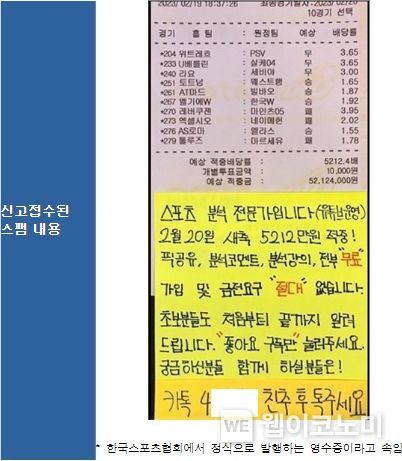 2023/02/19 18:37:26
10경기 선택
경기 홈 팀 : 원정팀 예상 배당률
*204 위트레흐 : PSV 무 3.65
*233 U베를린 : 샬케04 무 3.65
*240 리요 : 세비야 무 3.00
*251 토트넘 : 웨스트햄 승 1.65
*261 AT마드 : 빌바오 승 1.87
*267 벨기에W : 한국W 승 1.92
*270 레버쿠젠 : 마인츠05 패 3.95
*273 엑셀시오 : 네이메헌 무 2.02
*276 AS로마 : 엘라스 승 1.55
*279 툴루즈 : 마르세유 패 1.78
예상 적중배당률 : 5212.4배
개별투표금액 : 10,000원
예상 적중금 : 52,124,000원
신고접수된
스팸 내용
스포츠 분석 전문가입니다
2월 20일 새축 5212만원 적중!
픽공유, 분석코멘트, 분석강의, 전부 "무료"
가입 및 금전요구 "절대" 없습니다.
초보분들도 처음부터 끝까지 알려
드립니다. "좋아요 구독만" 눌러주세요.
궁금하신분들 함께 하실분들은!
카톡 4 친추 후 톡주세요
WE 웹이코노미
* 한국스포츠협회에서 정식으로 발행하는 영수증이라고 속임